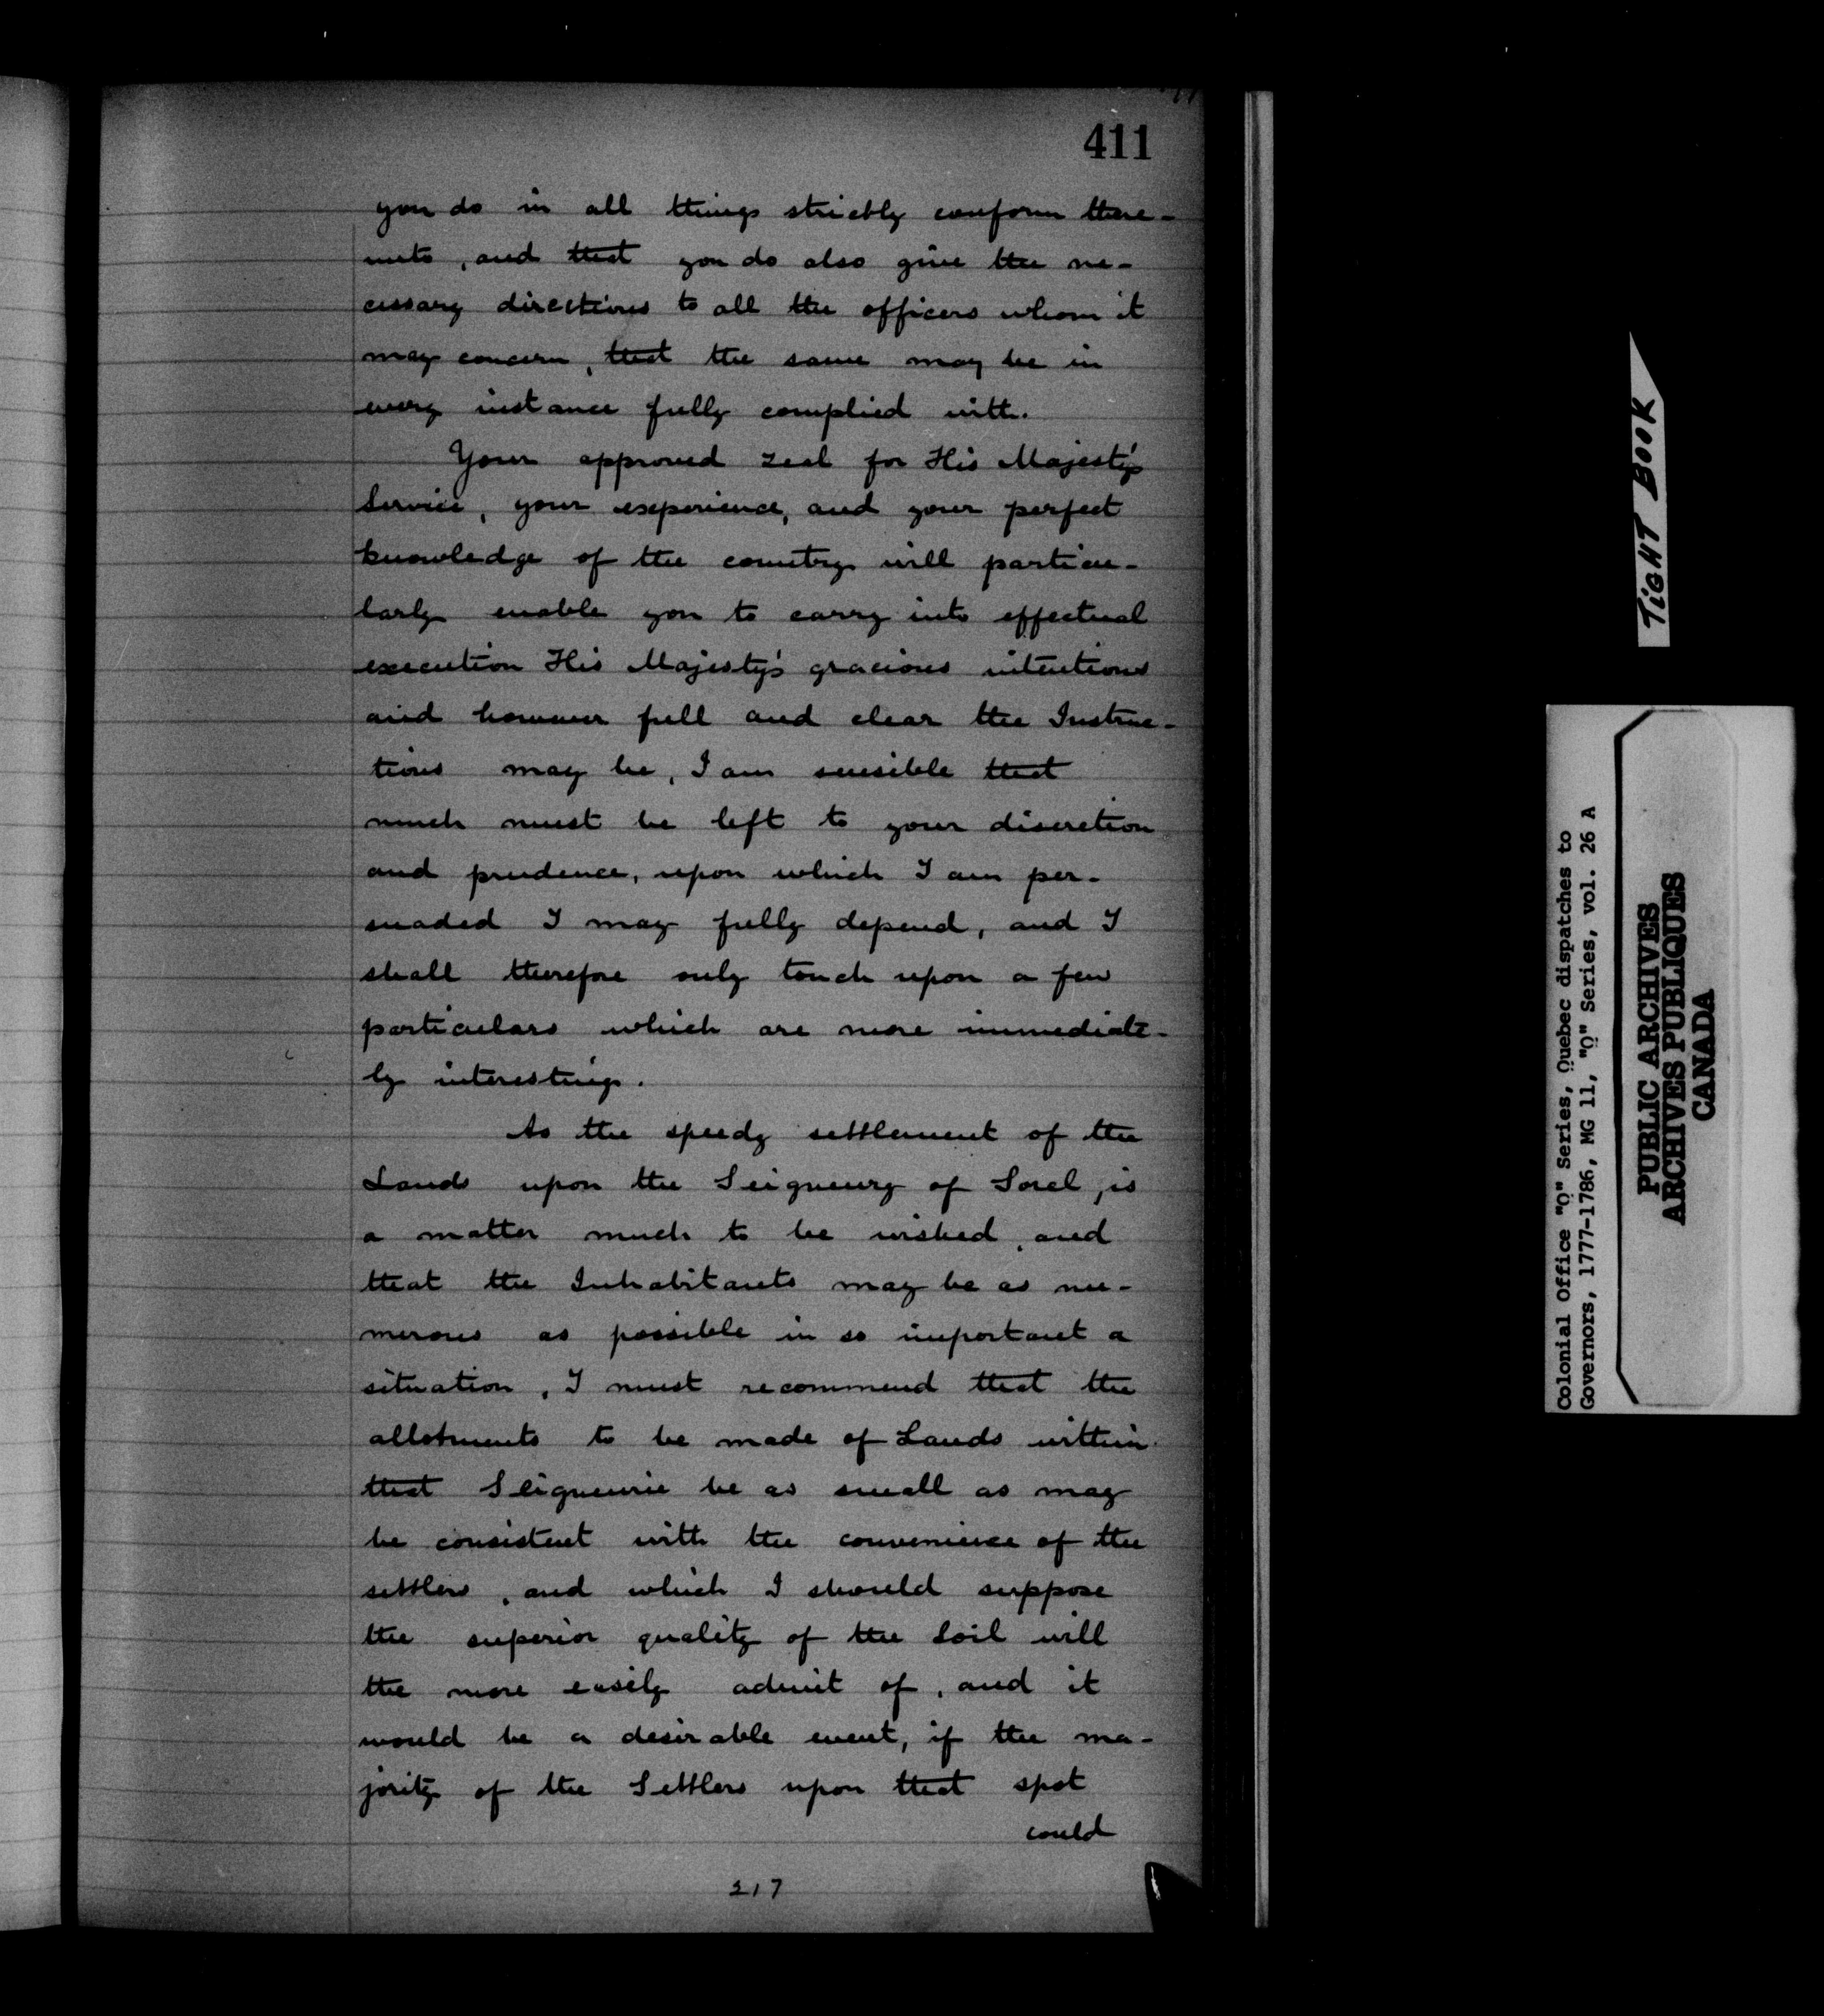 411
you do in all things strictly conform there-
unto, and that you do also give the ne-
cessary directions to all the officers whom it
may concern, that the same may be in
every instance fully complied with.
Your approved zeal for His Majesty's
Service, your experience, and your perfect
knowledge of the country will particu-
larly enable you to carry into effectual
execution His Majesty's gracious intentions
and however full and clear the Instruc-
tions may be, I am sensible that
much must be left to your discretion
and prudence, upon which I am per-
suaded I may fully depend, and I
shall therefore only touch upon a few
particulars which are more immediate-
ly interesting.
As the speedy settlement of the
Lands upon the Seigneury of Sorel, is
a matter much to be wished, and
that the Inhabitants may be as nu-
merous as possible in so important a
situation, I must recommend that the
allotments to be made of Lands within
that Seigneurie be as small as may
be consistent with the convenience of the
settlers, and which I should suppose
the superior quality of the Soil will
the more easily admit of, and it
would be a desirable event, if the ma-
jority of the Settlers upon that spot
could
217
TIGHT BOOK
Colonial Office "Q" Series, Quebec dispatches to
Governors, 1777-1786, MG 11, "Q" Series, vol. 26 A
PUBLIC ARCHIVES
ARCHIVES PUBLIQUES
CANADA